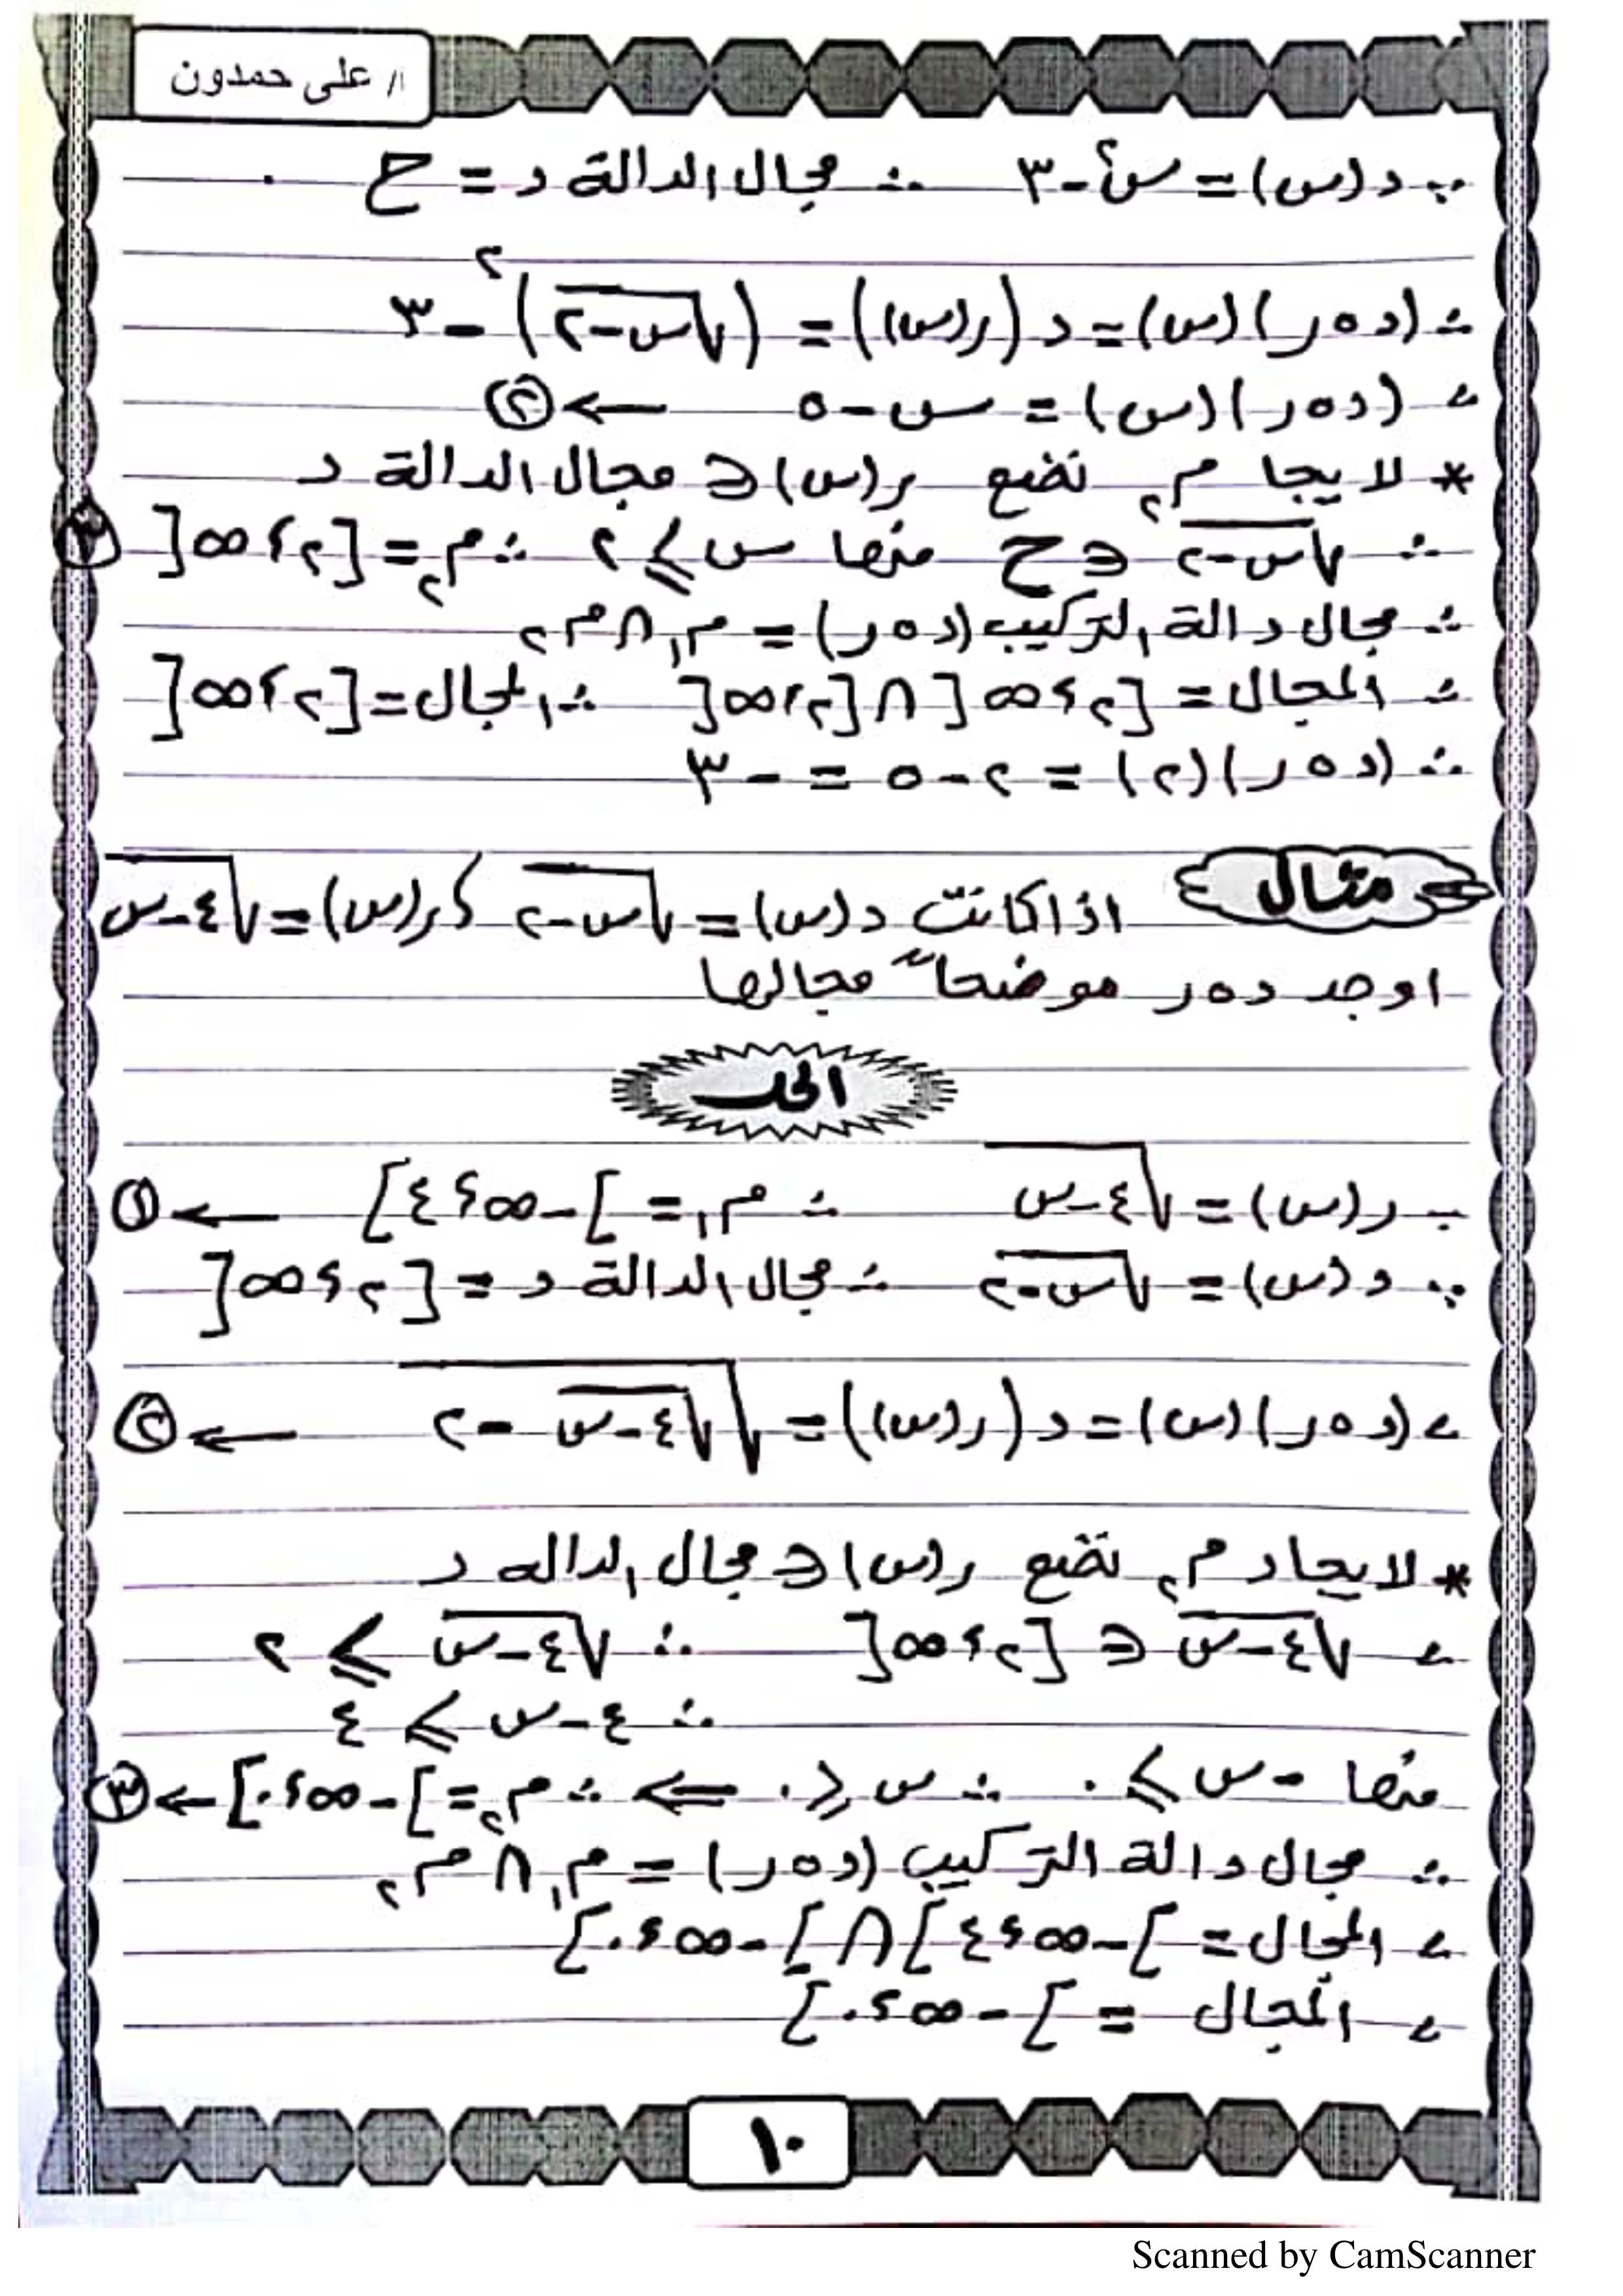 أ/ على حمدون
∵ د(س) = س² - ٣ ∴ مجال الدالة د = ح
∴ (د∘ر)(س) = د(ر(س)) = (√(س-٢))² - ٣
∴ (د∘ر)(س) = س - ٥ ← ②
* لايجا م₂ نضع ر(س) ∈ مجال الدالة د
∴ √(س-٢) ∈ ح منها س ≥ ٢ ∴ م₂ = [٢،∞[ ③
∴ مجال دالة التركيب (د∘ر) = م₁ ∩ م₂
∴ المجال = [٢،∞[ ∩ [٢،∞[ ∴ المجال = [٢،∞[
∴ (د∘ر)(٢) = ٢ - ٥ = -٣
مثال اذا كانت د(س) = √(س-٢) ، ر(س) = √(٤-س)
اوجد د∘ر موضحاً مجالها
الحل
∵ ر(س) = √(٤-س) ∴ م₁ = ]-∞،٤] ← ①
∵ د(س) = √(س-٢) ∴ مجال الدالة د = [٢،∞[
∴ (د∘ر)(س) = د(ر(س)) = √(√(٤-س) - ٢) ← ②
* لايجاد م₂ نضع ر(س) ∈ مجال الداله د
∴ √(٤-س) ∈ [٢،∞[ ∴ √(٤-س) ≥ ٢
∴ ٤-س ≥ ٤
منها -س ≥ ٠ ∴ س ≤ ٠ ⇐ ∴ م₂ = ]-∞،٠] ← ③
∴ مجال دالة التركيب (د∘ر) = م₁ ∩ م₂
∴ المجال = ]-∞،٤] ∩ ]-∞،٠]
∴ المجال = ]-∞،٠]
١٠
Scanned by CamScanner